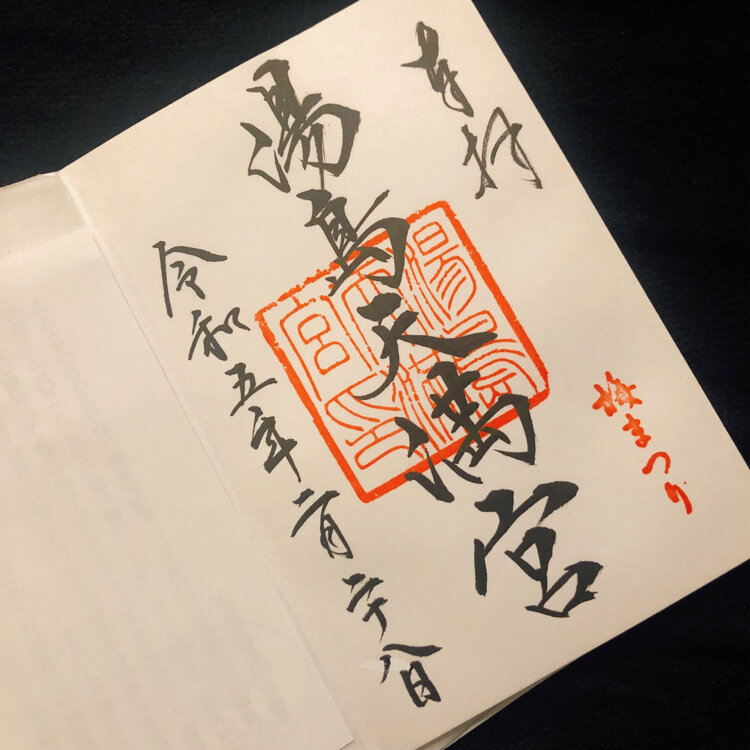 奉拝
梅まつり
湯島天満宮
令和五年二月二十八日